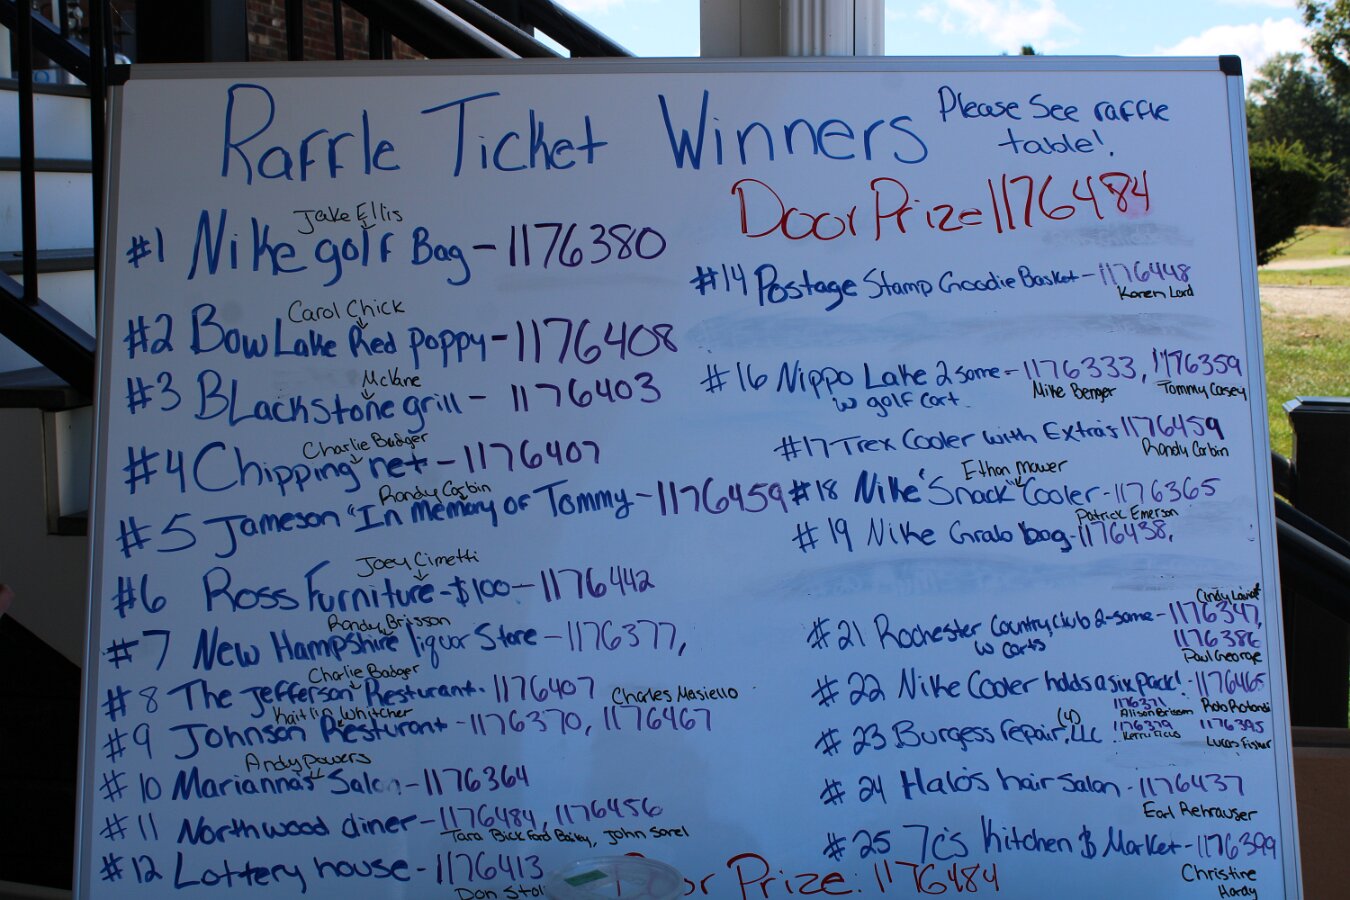 Raffle Ticket Winners
Please See raffle
table!
Door Prize 1176484
Jake Ellis
#1 Nike golf Bag - 1176380
Carol Chick
#2 Bow Lake Red poppy - 1176408
McKane
#3 BLackstone grill - 1176403
Charlie Badger
#4 Chipping net - 1176407
Randy Corbin
#5 Jameson "In Memory of Tommy - 1176459
Joey Cimetti
#6 Ross Furniture - $100 - 1176442
Randy Brisson
#7 New Hampshire liquor Store - 1176377,
Charlie Badger
#8 The Jefferson Resturant. 1176407
Charles Masiello
Kaitlin Whitcher
#9 Johnson Resturant - 1176370, 1176467
Andy Powers
#10 Marianna's Salon - 1176364
#11 Northwood diner - 1176484, 1176456
Tara Bickford Bailey, John Sorel
#12 Lottery house - 1176413
Don
#14 Postage Stamp Goodie Basket - 1176448
Karen Lord
#16 Nippo Lake 2 some - 1176333, 1176359
w golf cart
Mike Berger Tommy Casey
#17 Trex Cooler with Extra's 1176459
Randy Corbin
Ethan Mower
#18 Nike "Snack" Cooler - 1176365
Patrick Emerson
#19 Nike Grab bag - 1176438,
Cindy
#21 Rochester Country club 2-some - 1176347,
w carts 1176386
Paul George
#22 Nike Cooler holds a six pack! - 1176465
Rob Rotondi
#23 Burgess repair, LLC (4)
1176371
Alison Brisson
1176379
1176395
Lucas Fisher
#24 Halo's hair Salon - 1176437
Earl Rehrauser
#25 7c's Kitchen & Market - 1176399
Christine
Hardy
Prize: 1176484